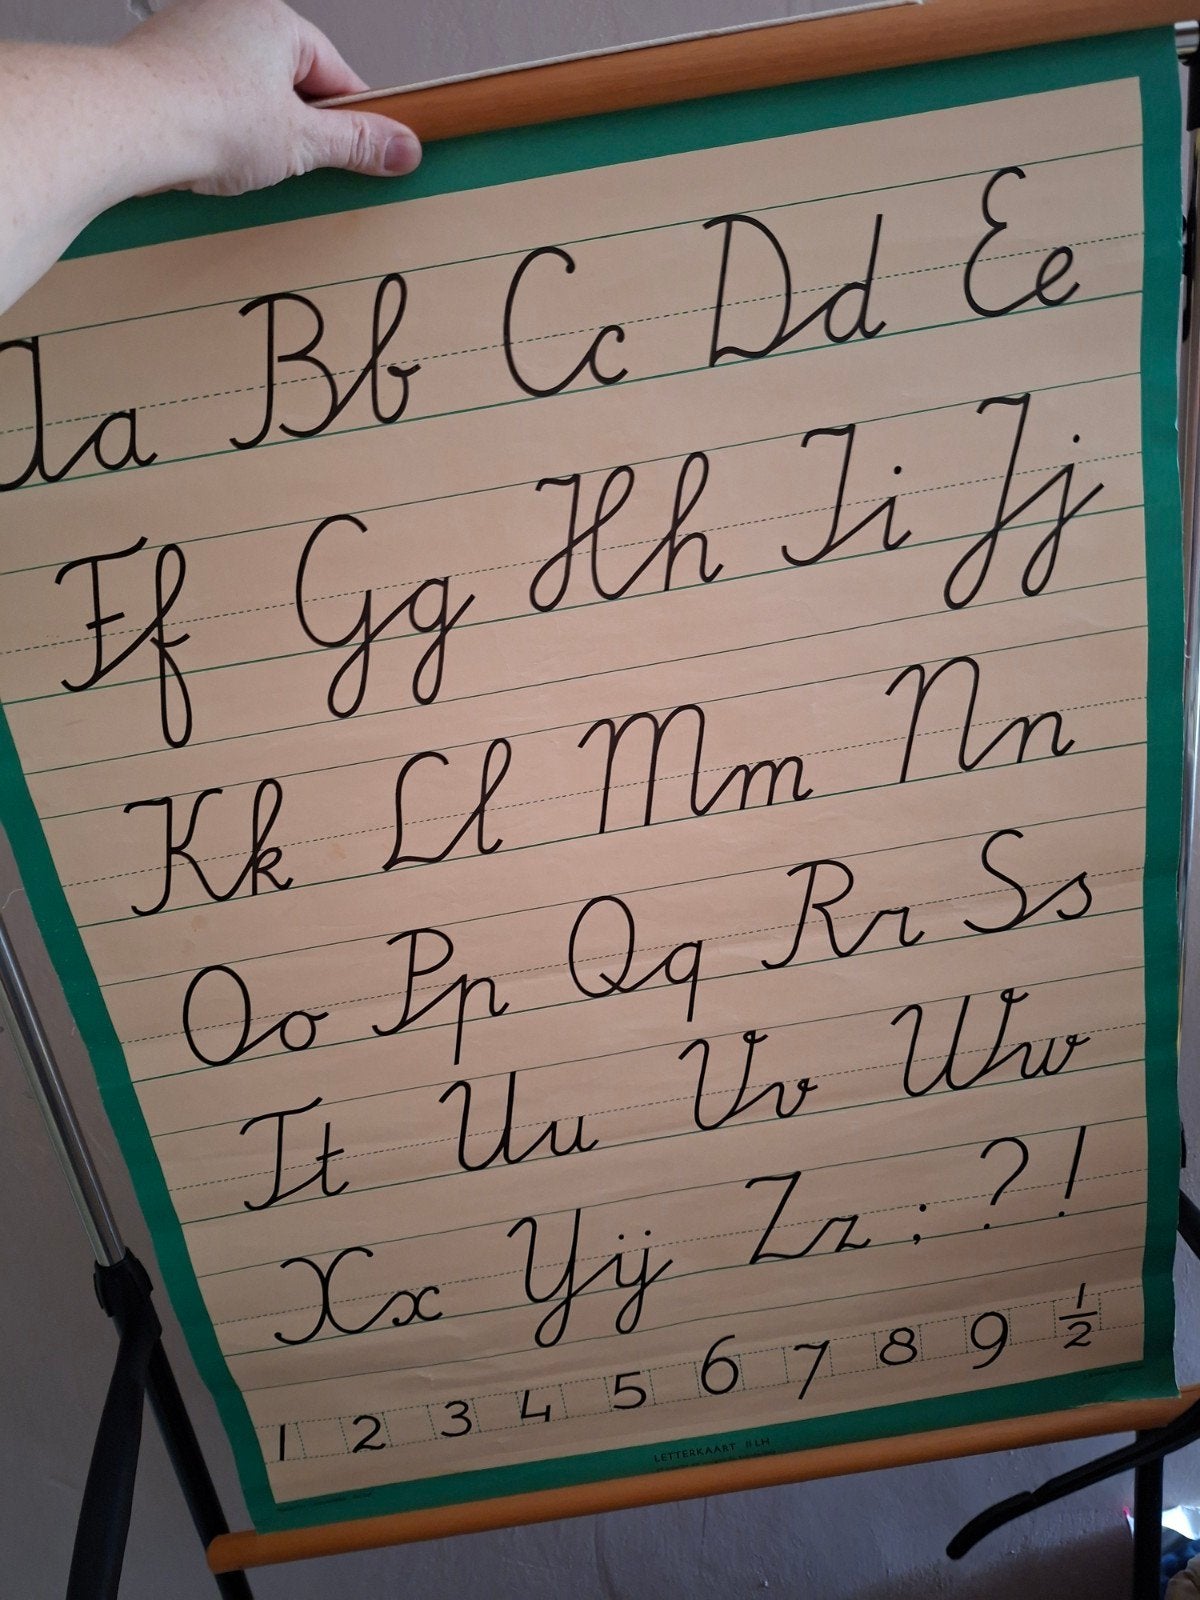 Aa Bb Cc Dd Ee
Ff Gg Hh Ii Jj
Kk Ll Mm Nn
Oo Pp Qq Rr Ss
Tt Uu Vv Ww
Xx Yij Zz ; ? !
1 2 3 4 5 6 7 8 9 1/2
LETTERKAART II LH